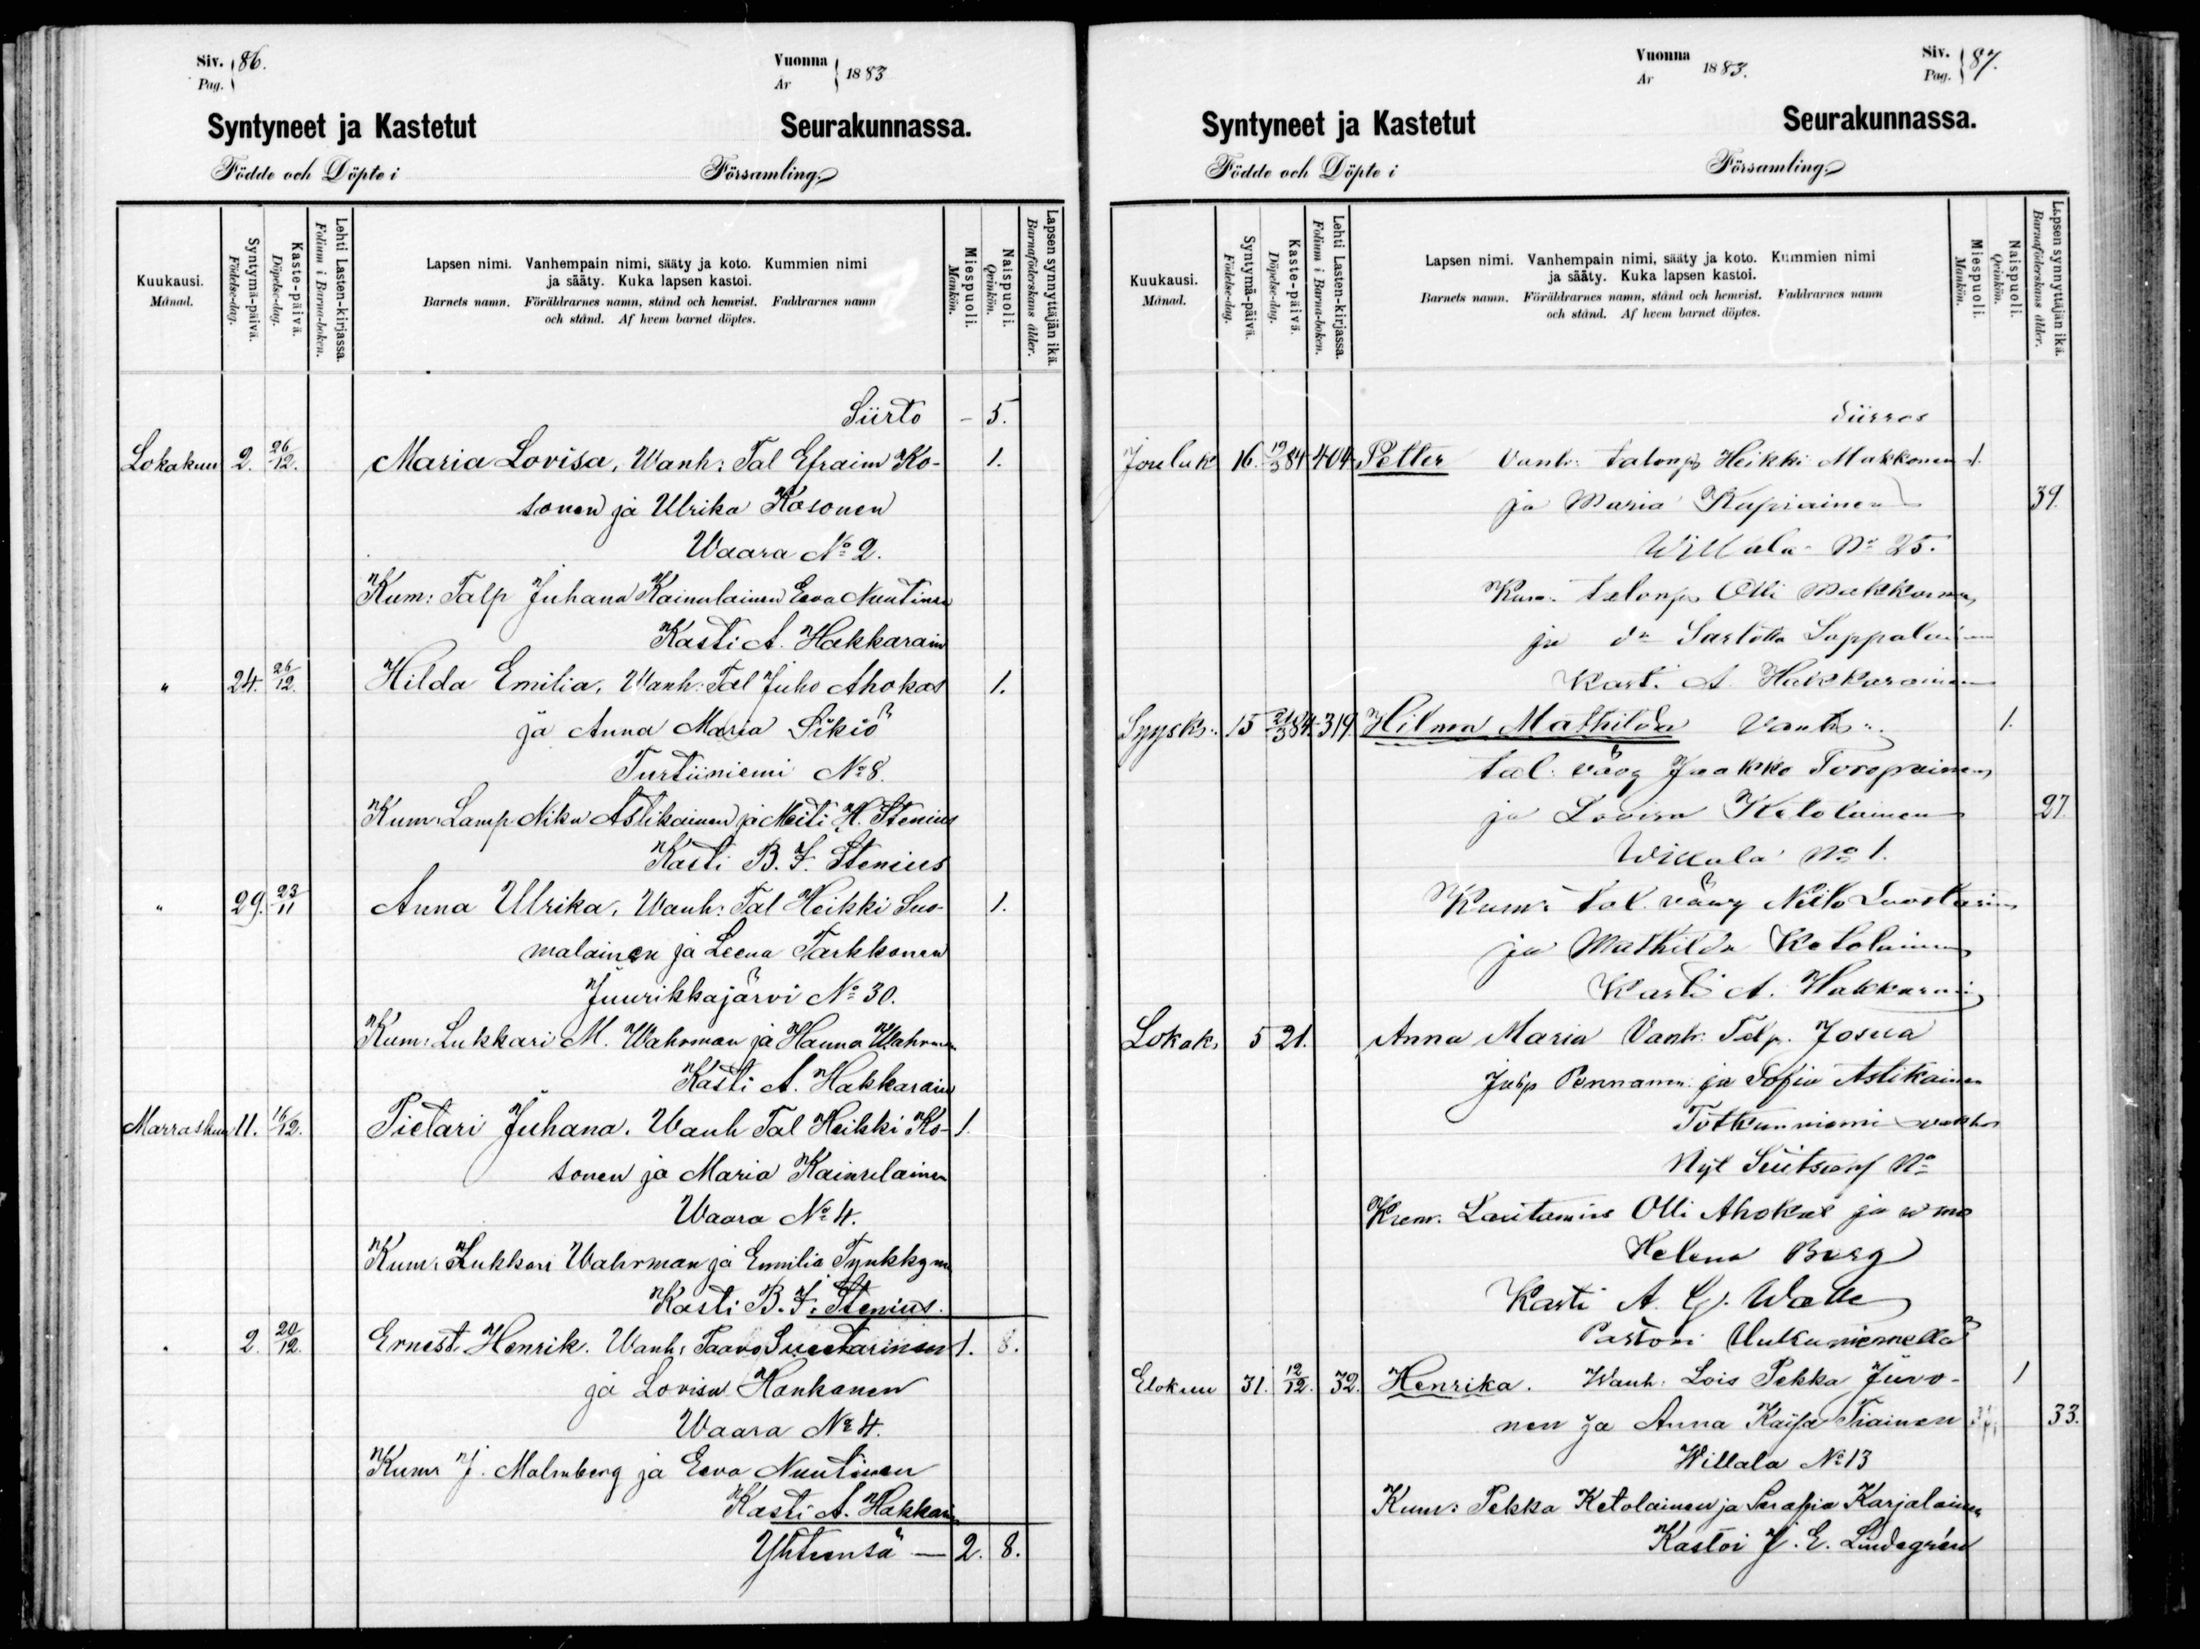 Siv. 86.
Pag.
Vuonna
År 1883
Syntyneet ja Kastetut Seurakunnassa.
Födde och Döpte i Församling.
Kuukausi.
Månad.
Syntymä-päivä.
Födelse-dag.
Kaste-päivä.
Döpelse-dag.
Lehti Lasten-kirjassa.
Folium i Barna-boken.
Lapsen nimi. Vanhempain nimi, sääty ja koto. Kummien nimi
ja sääty. Kuka lapsen kastoi.
Barnets namn. Föräldrarnes namn, stånd och hemvist. Faddrarnes namn
och stånd. Af hvem barnet döptes.
Miespuoli.
Mankön.
Naispuoli.
Qvinkön.
Lapsen synnyttäjän ikä.
Barnaföderskans ålder.
Siirto - 5.
Lokakuu 2. 26/12. Maria Lovisa, Wanh: Tal Efraim Ko- 1.
sonen ja Ulrika Kosonen
Waara No 2.
Kum: Talp Juhana Kainulainen Eeva Nuutinen
Kasti A. Hakkarain
" 24. 26/12. Hilda Emilia, Wanh: Tal Juho Ahokas 1.
ja Anna Maria Sikiö
Turtiiniemi No 8.
Kum: Lamp. Niku Astikainen ja Neiti H. Stenius
Kasti B. F. Stenius
" 29. 23/11 Anna Ulrika, Wanh: Tal Heikki Suo- 1.
malainen ja Leena Tarkkonen
Juurikkajärvi No 30.
Kum: Lukkari M. Wahrman ja Hanna Wahrman
Kasti A. Hakkarain
Marraskuu 11. 16/12. Pietari Juhana. Wanh Tal Heikki Ko- 1.
sonen ja Maria Kainulainen
Waara No 4.
Kum: Lukkari Wahrman ja Emilia Tynkkynen
Kasti B. F. Stenius.
" 2. 20/12. Ernest Henrik. Wanh: Taavo Suutarinen 1. 8.
ja Lovisa Hankanen
Waara No 4.
Kum J. Malmberg ja Eeva Nuutinen
Kasti A. Hakkarain
Yhteensä — 2. 8.
Vuonna
År 1883.
Siv. 87.
Pag.
Syntyneet ja Kastetut Seurakunnassa.
Födde och Döpte i Församling.
Kuukausi.
Månad.
Syntymä-päivä.
Födelse-dag.
Kaste-päivä.
Döpelse-dag.
Lehti Lasten-kirjassa.
Folium i Barna-boken.
Lapsen nimi. Vanhempain nimi, sääty ja koto. Kummien nimi
ja sääty. Kuka lapsen kastoi.
Barnets namn. Föräldrarnes namn, stånd och hemvist. Faddrarnes namn
och stånd. Af hvem barnet döptes.
Miespuoli.
Mankön.
Naispuoli.
Qvinkön.
Lapsen synnyttäjän ikä.
Barnaföderskans ålder.
Siirros
Jouluk 16. 19/3 84 404 Petter Vanh: talonp Heikki Makkonen 1.
ja Maria Kupiainen 39.
Willala No 25.
Kum. talonp Olli Makkonen
ja Sarlotta Lappalainen
Kasti A Hakkarainen
Syysk: 15 84 319 Hilma Mathilda Vanh: 1.
tal. vävy Jaakko Toropainen
ja Lovisa Ketolainen 27.
Willala No 1.
Kum: tal. vävy Niilo Luostarin
ja Mathilda Ketolainen
Kasti A. Hakkarain
Lokak. 5 21. Anna Maria Vanh: Talp. Josua
Pennanen ja Sofia Astikainen
Totkunniemi
Nyt No
Kum. Lautamies Olli Ahokas ja wmo
Helena Berg
Kasti A. G. Walle
Pastori Uukuniemellä
Elokuu 31. 12/12. 32. Henrika. Wanh: Lois Pekka Juvo- 1
nen ja Anna Kaisa Tiainen 33.
Willala No 13
Kum: Pekka Ketolainen ja Serafia Karjalainen
Kastoi J. E. Lindegrén